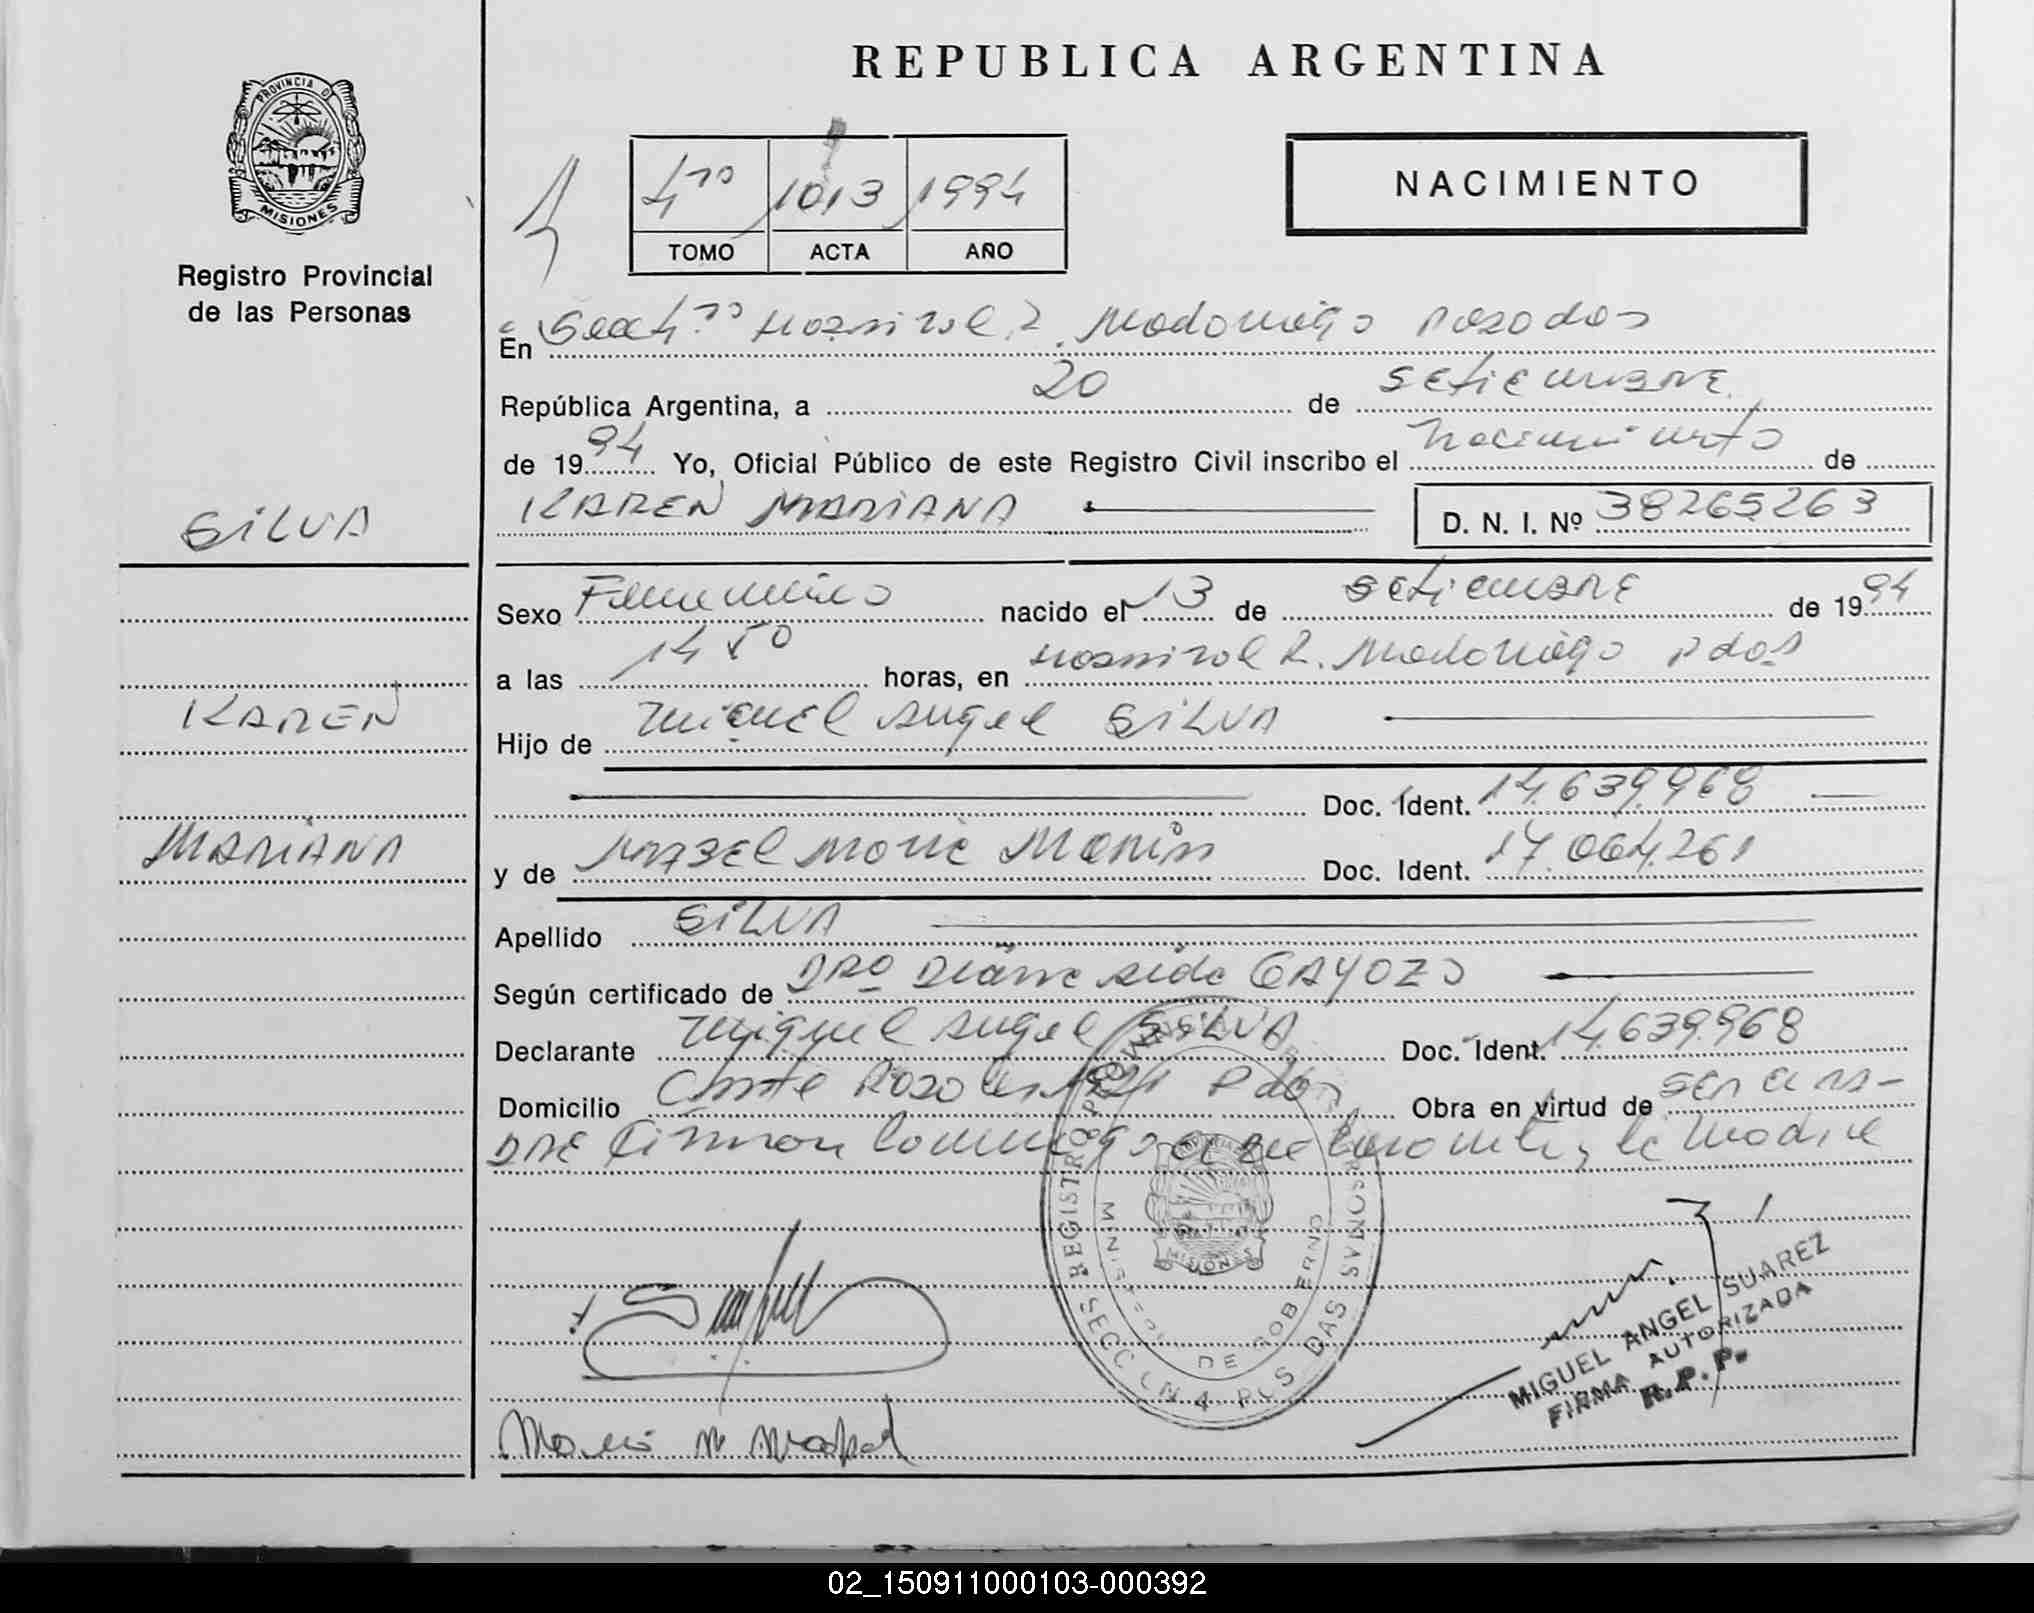 REPUBLICA ARGENTINA
PROVINCIA DE
MISIONES
Registro Provincial
de las Personas
4to 1013 1994
TOMO ACTA AÑO
NACIMIENTO
En Secc 4ta Hospital R. Madariaga Posadas
República Argentina, a 20 de setiembre
de 1994 Yo, Oficial Público de este Registro Civil inscribo el nacimiento de
KAREN MARIANA D. N. I. Nº 38265263
SILVA
KAREN
MARIANA
Sexo Femenino nacido el 13 de setiembre de 1994
a las 14 50 horas, en Hospital R. Madariaga Pdas
Hijo de Miguel Angel SILVA
Doc. Ident. 14.639.968
y de Doc. Ident. 17.064.261
Apellido SILVA
Según certificado de DRA GAYOZO
Declarante Miguel Angel SILVA Doc. Ident. 14.639.968
Domicilio Pdas Obra en virtud de ser el pa-
DRE Firman conmigo el declarante y la madre
REGISTRO PROVINCIAL DE LAS PERSONAS
MINISTERIO DE GOBIERNO
MISIONES
SECCION 4 POSADAS
MIGUEL ANGEL SUAREZ
FIRMA AUTORIZADA
R.P.P.
02_150911000103-000392